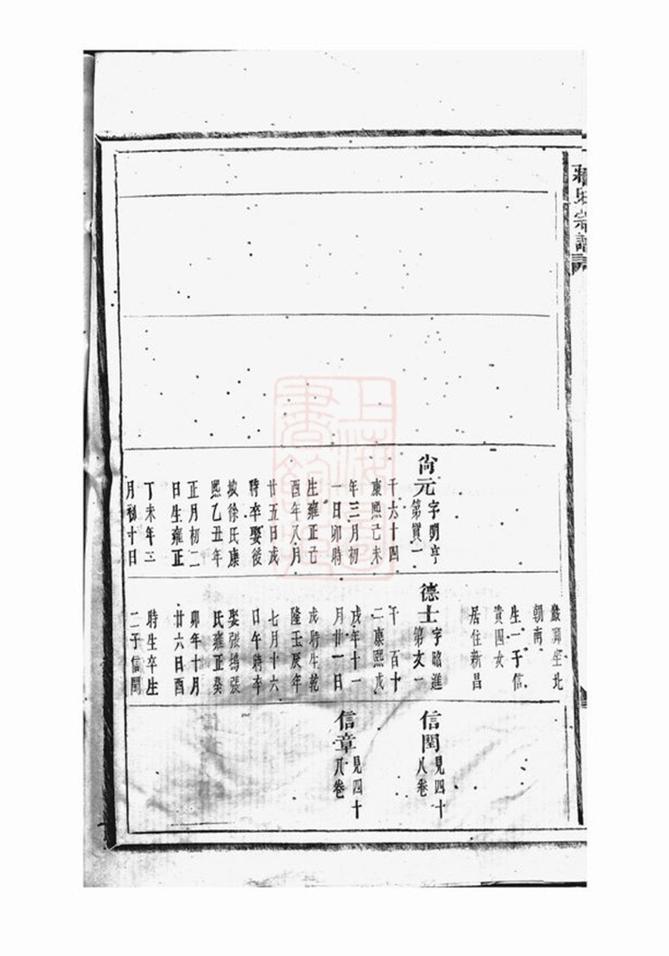 氏宗譜
尚元 字明亨
第貿一
千六十四
康熙己未
年三月初
一日卯時
生雍正己
酉年八月
廿五日戌
時卒娶後
坡徐氏康
熙乙丑年
正月初二
日生雍正
丁未年三
月初十日
坐北
朝南
生一子信
四女
居住新昌
德士 字進
第一
千百十
二康熙戊
戌年十一
月廿一日
戌時生乾
隆壬辰年
七月十六
日午時卒
娶張塢張
氏雍正癸
卯年十月
廿六日酉
時生卒生
二子信閏
信閏 見四十
八卷
信章 見四十
八卷